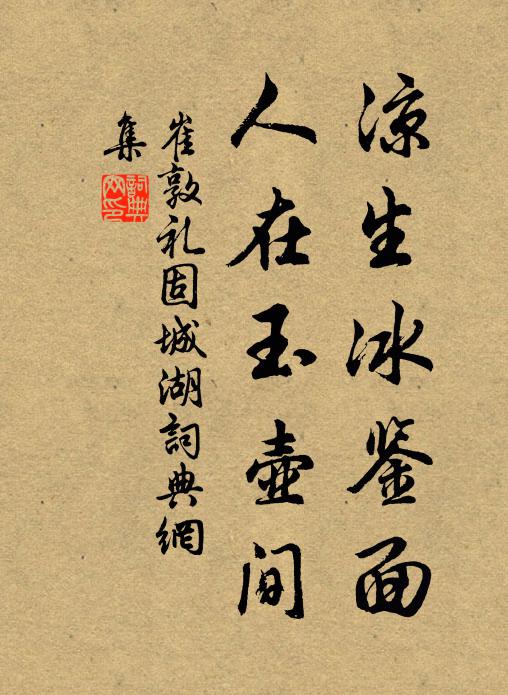 凉生冰鉴面
人在玉壶间
崔敦礼固城湖詞典網
集
詞典
网印